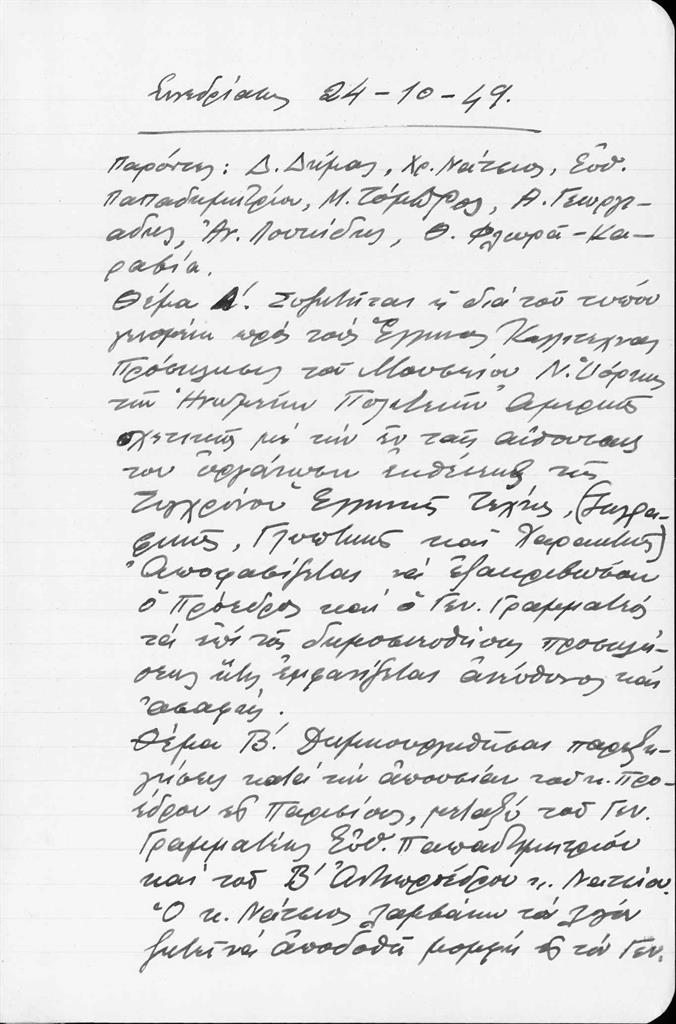 Συνεδρίασις 24-10-49.
Παρόντες: Δ. Δήμας, Χρ. Νάτσιος, Εὐθ.
Παπαδημητρίου, Μ. Τόμπρος, Α. Γεωργι-
άδης, Ἀν. Λουκίδης, Θ. Φλωρᾶ-Κα-
ραβία.
Θέμα Α΄. Συζητεῖται ἡ διά τοῦ τύπου
γενομένη πρός τούς Ἕλληνας Καλλιτέχνας
Πρόσκλησις τοῦ Μουσείου Ν. Ὑόρκης
τῶν Ἡνωμένων Πολιτειῶν Ἀμερικῆς
σχετικῶς μέ τήν ἐν ταῖς αἰθούσαις
του ὀργάνωσιν ἐκθέσεως τῆς
Συγχρόνου Ἑλληνικῆς Τέχνης, (Ζωγρα-
φικῆς, Γλυπτικῆς καί Χαρακτικῆς)
Ἀποφασίζεται νά ἐξακριβώσουν
ὁ Πρόεδρος καί ὁ Γεν. Γραμματεύς
τά ἐπί τῆς δημοσιευθείσης προσκλή-
σεως ἥτις ἐμφανίζεται ἀνεύθυνος καί
ἀσαφής.
Θέμα Β΄. Δημιουργηθεῖσαι παρεξη-
γήσεις κατά τήν ἀπουσίαν τοῦ κ. Προ-
έδρου εἰς Παρισίους, μεταξύ τοῦ Γεν.
Γραμματέως Εὐθ. Παπαδημητρίου
καί τοῦ Β΄ Ἀντιπροέδρου κ. Νάτσιου.
Ὁ κ. Νάτσιος λαμβάνων τόν λόγον
ζητεῖ νά ἀποδοθῆ μομφή εἰς τόν Γεν.